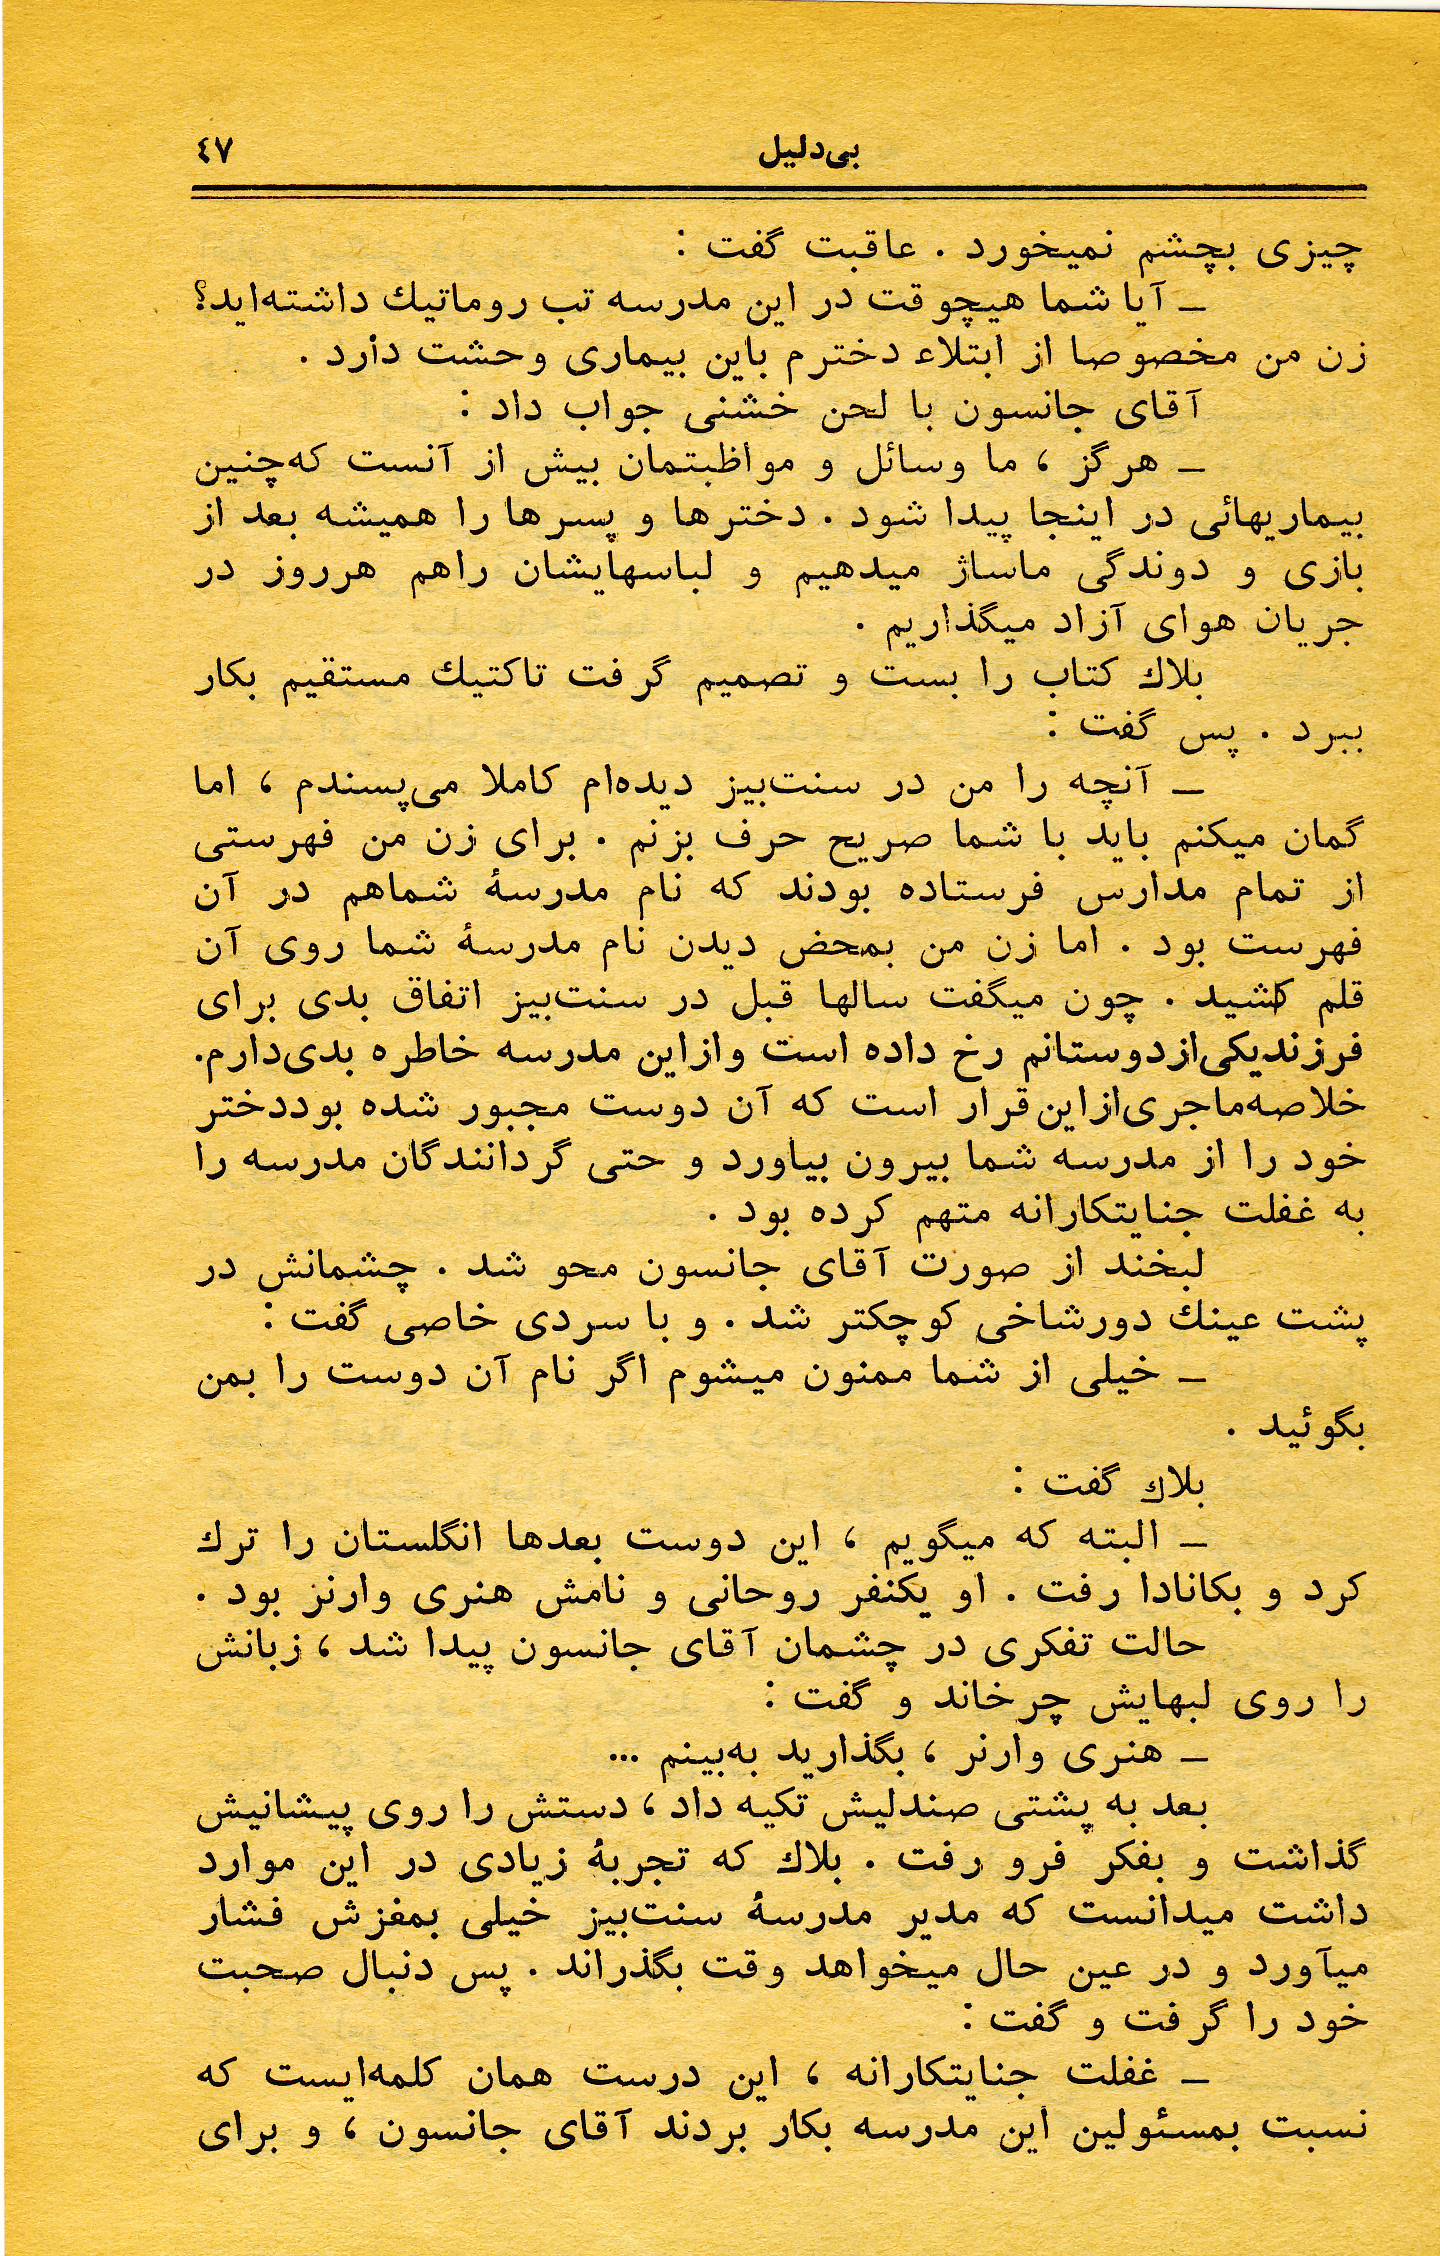 بی‌دلیل ٤٧
چیزی بچشم نمیخورد . عاقبت گفت :
ـ آیا شما هیچوقت در این مدرسه تب روماتیك داشته‌اید؟
زن من مخصوصا از ابتلاء دخترم باین بیماری وحشت دارد .
آقای جانسون با لحن خشنی جواب داد :
ـ هرگز ، ما وسائل و مواظبتمان بیش از آنست که‌چنین
بیماریهائی در اینجا پیدا شود . دخترها و پسرها را همیشه بعد از
بازی و دوندگی ماساژ میدهیم و لباسهایشان راهم هرروز در
جریان هوای آزاد میگذاریم .
بلاك کتاب را بست و تصمیم گرفت تاکتیك مستقیم بکار
ببرد . پس گفت :
ـ آنچه را من در سنت‌بیز دیده‌ام کاملا می‌پسندم ، اما
گمان میکنم باید با شما صریح حرف بزنم . برای زن من فهرستی
از تمام مدارس فرستاده بودند که نام مدرسهٔ شماهم در آن
فهرست بود . اما زن من بمحض دیدن نام مدرسهٔ شما روی آن
قلم کشید . چون میگفت سالها قبل در سنت‌بیز اتفاق بدی برای
فرزندیکی‌ازدوستانم رخ داده است وازاین مدرسه خاطره بدی‌دارم.
خلاصه‌ماجری‌ازاین‌قرار است که آن دوست مجبور شده بوددختر
خود را از مدرسه شما بیرون بیاورد و حتی گردانندگان مدرسه را
به غفلت جنایتکارانه متهم کرده بود .
لبخند از صورت آقای جانسون محو شد . چشمانش در
پشت عینك دورشاخی کوچکتر شد . و با سردی خاصی گفت :
ـ خیلی از شما ممنون میشوم اگر نام آن دوست را بمن
بگوئید .
بلاك گفت :
ـ البته که میگویم ، این دوست بعدها انگلستان را ترك
کرد و بکانادا رفت . او یکنفر روحانی و نامش هنری وارنز بود .
حالت تفکری در چشمان آقای جانسون پیدا شد ، زبانش
را روی لبهایش چرخاند و گفت :
ـ هنری وارنر ، بگذارید به‌بینم ...
بعد به پشتی صندلیش تکیه داد ، دستش را روی پیشانیش
گذاشت و بفکر فرو رفت . بلاك که تجربهٔ زیادی در این موارد
داشت میدانست که مدیر مدرسهٔ سنت‌بیز خیلی بمغزش فشار
میآورد و در عین حال میخواهد وقت بگذراند . پس دنبال صحبت
خود را گرفت و گفت :
ـ غفلت جنایتکارانه ، این درست همان کلمه‌ایست که
نسبت بمسئولین این مدرسه بکار بردند آقای جانسون ، و برای